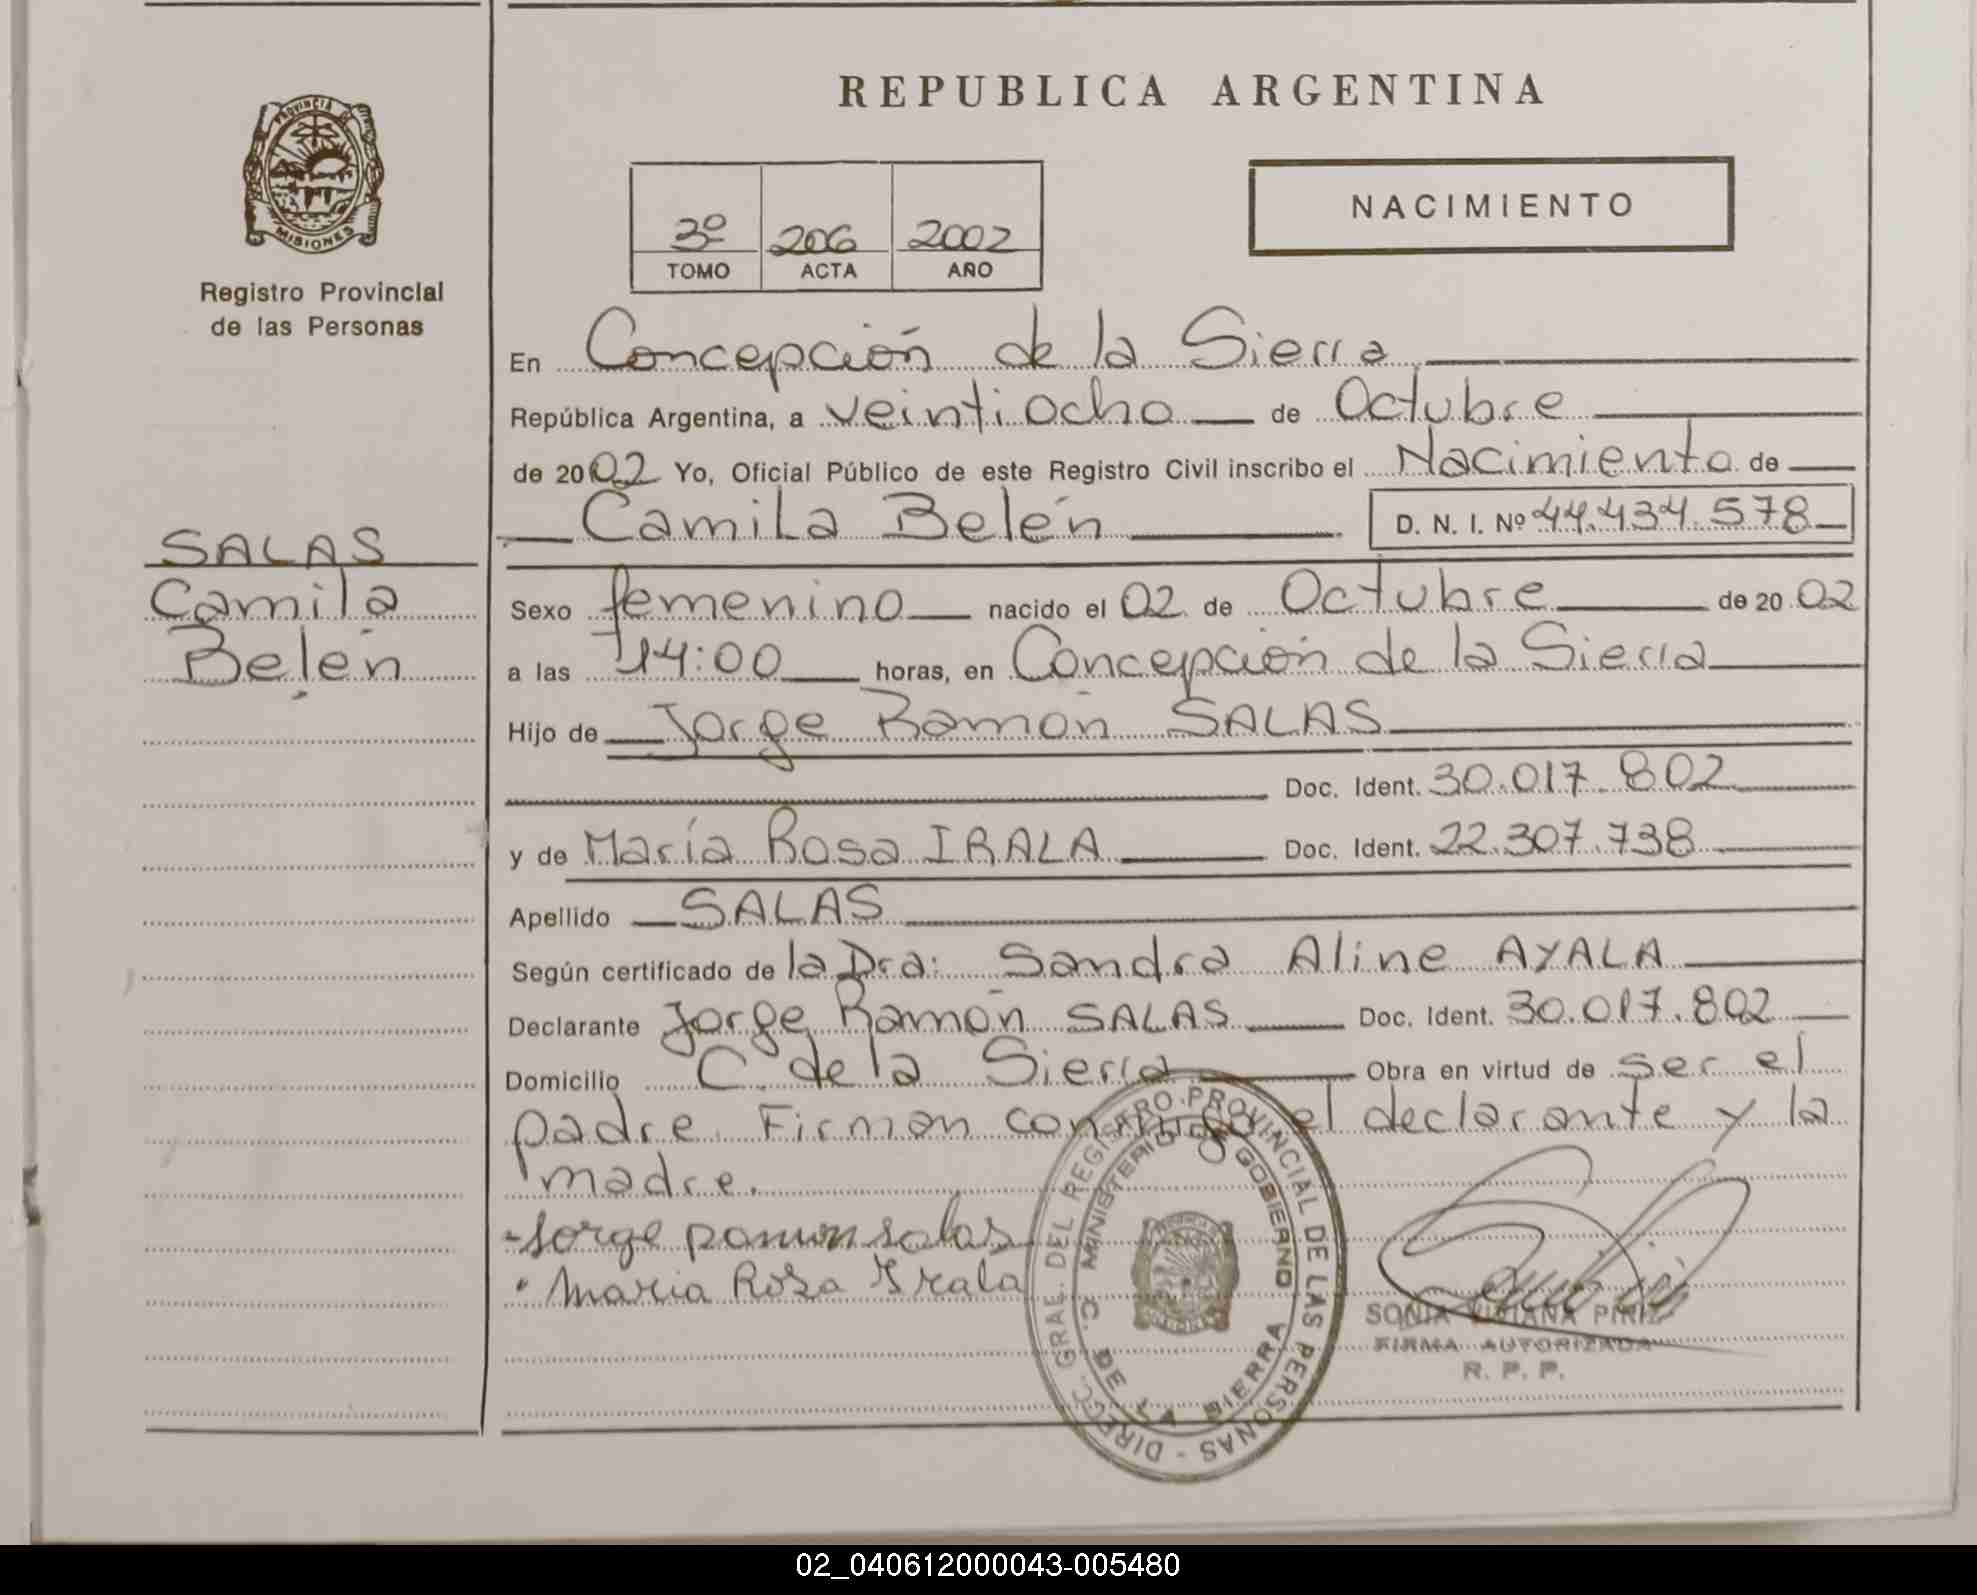 REPUBLICA ARGENTINA
PROVINCIA DE
MISIONES
Registro Provincial
de las Personas
3º 206 2002
TOMO ACTA AÑO
NACIMIENTO
En Concepción de la Sierra
República Argentina, a veintiocho de Octubre
de 2002 Yo, Oficial Público de este Registro Civil inscribo el Nacimiento de
Camila Belén D. N. I. Nº 44.434.578
SALAS
Camila
Belén
Sexo femenino nacido el 02 de Octubre de 2002
a las 14:00 horas, en Concepción de la Sierra
Hijo de Jorge Ramón SALAS
Doc. Ident. 30.017.802
y de María Rosa IRALA Doc. Ident. 22.307.738
Apellido SALAS
Según certificado de la Dra: Sandra Aline AYALA
Declarante Jorge Ramón SALAS Doc. Ident. 30.017.802
Domicilio C. de la Sierra Obra en virtud de ser el
padre. Firman conmigo el declarante y la
madre.
Jorge salas
Maria Rosa Irala
DIREC. GRAL. DEL REGISTRO PROVINCIAL DE LAS PERSONAS -
MINISTERIO DE GOBIERNO
C. DE LA SIERRA
SONIA VIVIANA PIRIZ
FIRMA AUTORIZADA
R. P. P.
02_040612000043-005480